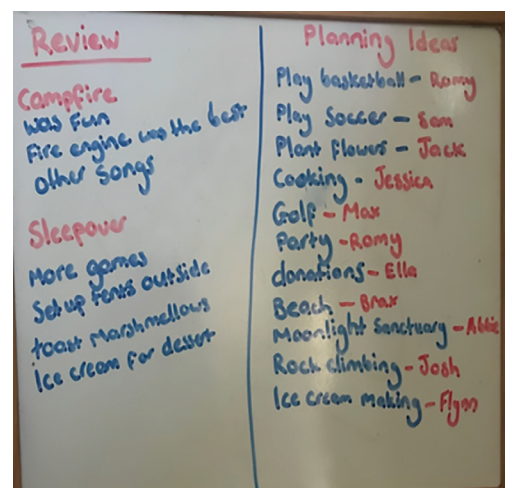 Review
Campfire
was Fun
Fire engine was the best
other Songs
Sleepover
More games
Set up tents outside
toast Marshmellows
Ice cream for dessert
Planning Ideas
Play basketball - Romy
Play Soccer - Sam
Plant flowers - Jack
Cooking - Jessica
Golf - Max
Party - Romy
donations - Ella
Beach - Brax
Moonlight Sanctuary - Abbie
Rock climbing - Josh
Ice cream making - Flynn